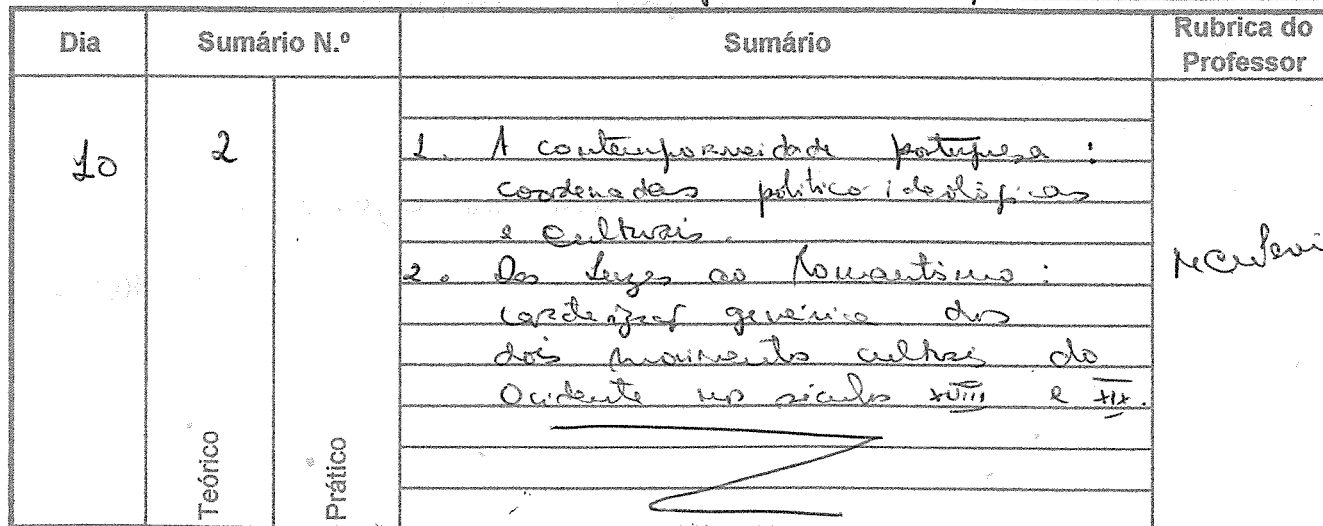 Dia Sumário N.º Sumário Rubrica do Professor
10 2
1. A contemporaneidade portuguesa :
coordenadas político-ideológicas
e culturais.
2. Das Luzes ao Romantismo :
caracterização genérica dos
dois movimentos culturais do
Ocidente nos séculos XVIII e XIX.
Teórico Prático